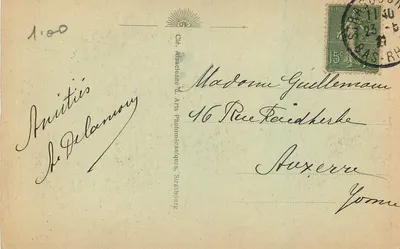 1.00
Amitiés
A. Delamour
Cie. Alsacienne d. Arts Photomécaniques, Strasbourg
11 40
23 - 5
BAS-RH
15
Madame Guillemain
16 Rue Faidherbe
Auxerre
Yonne